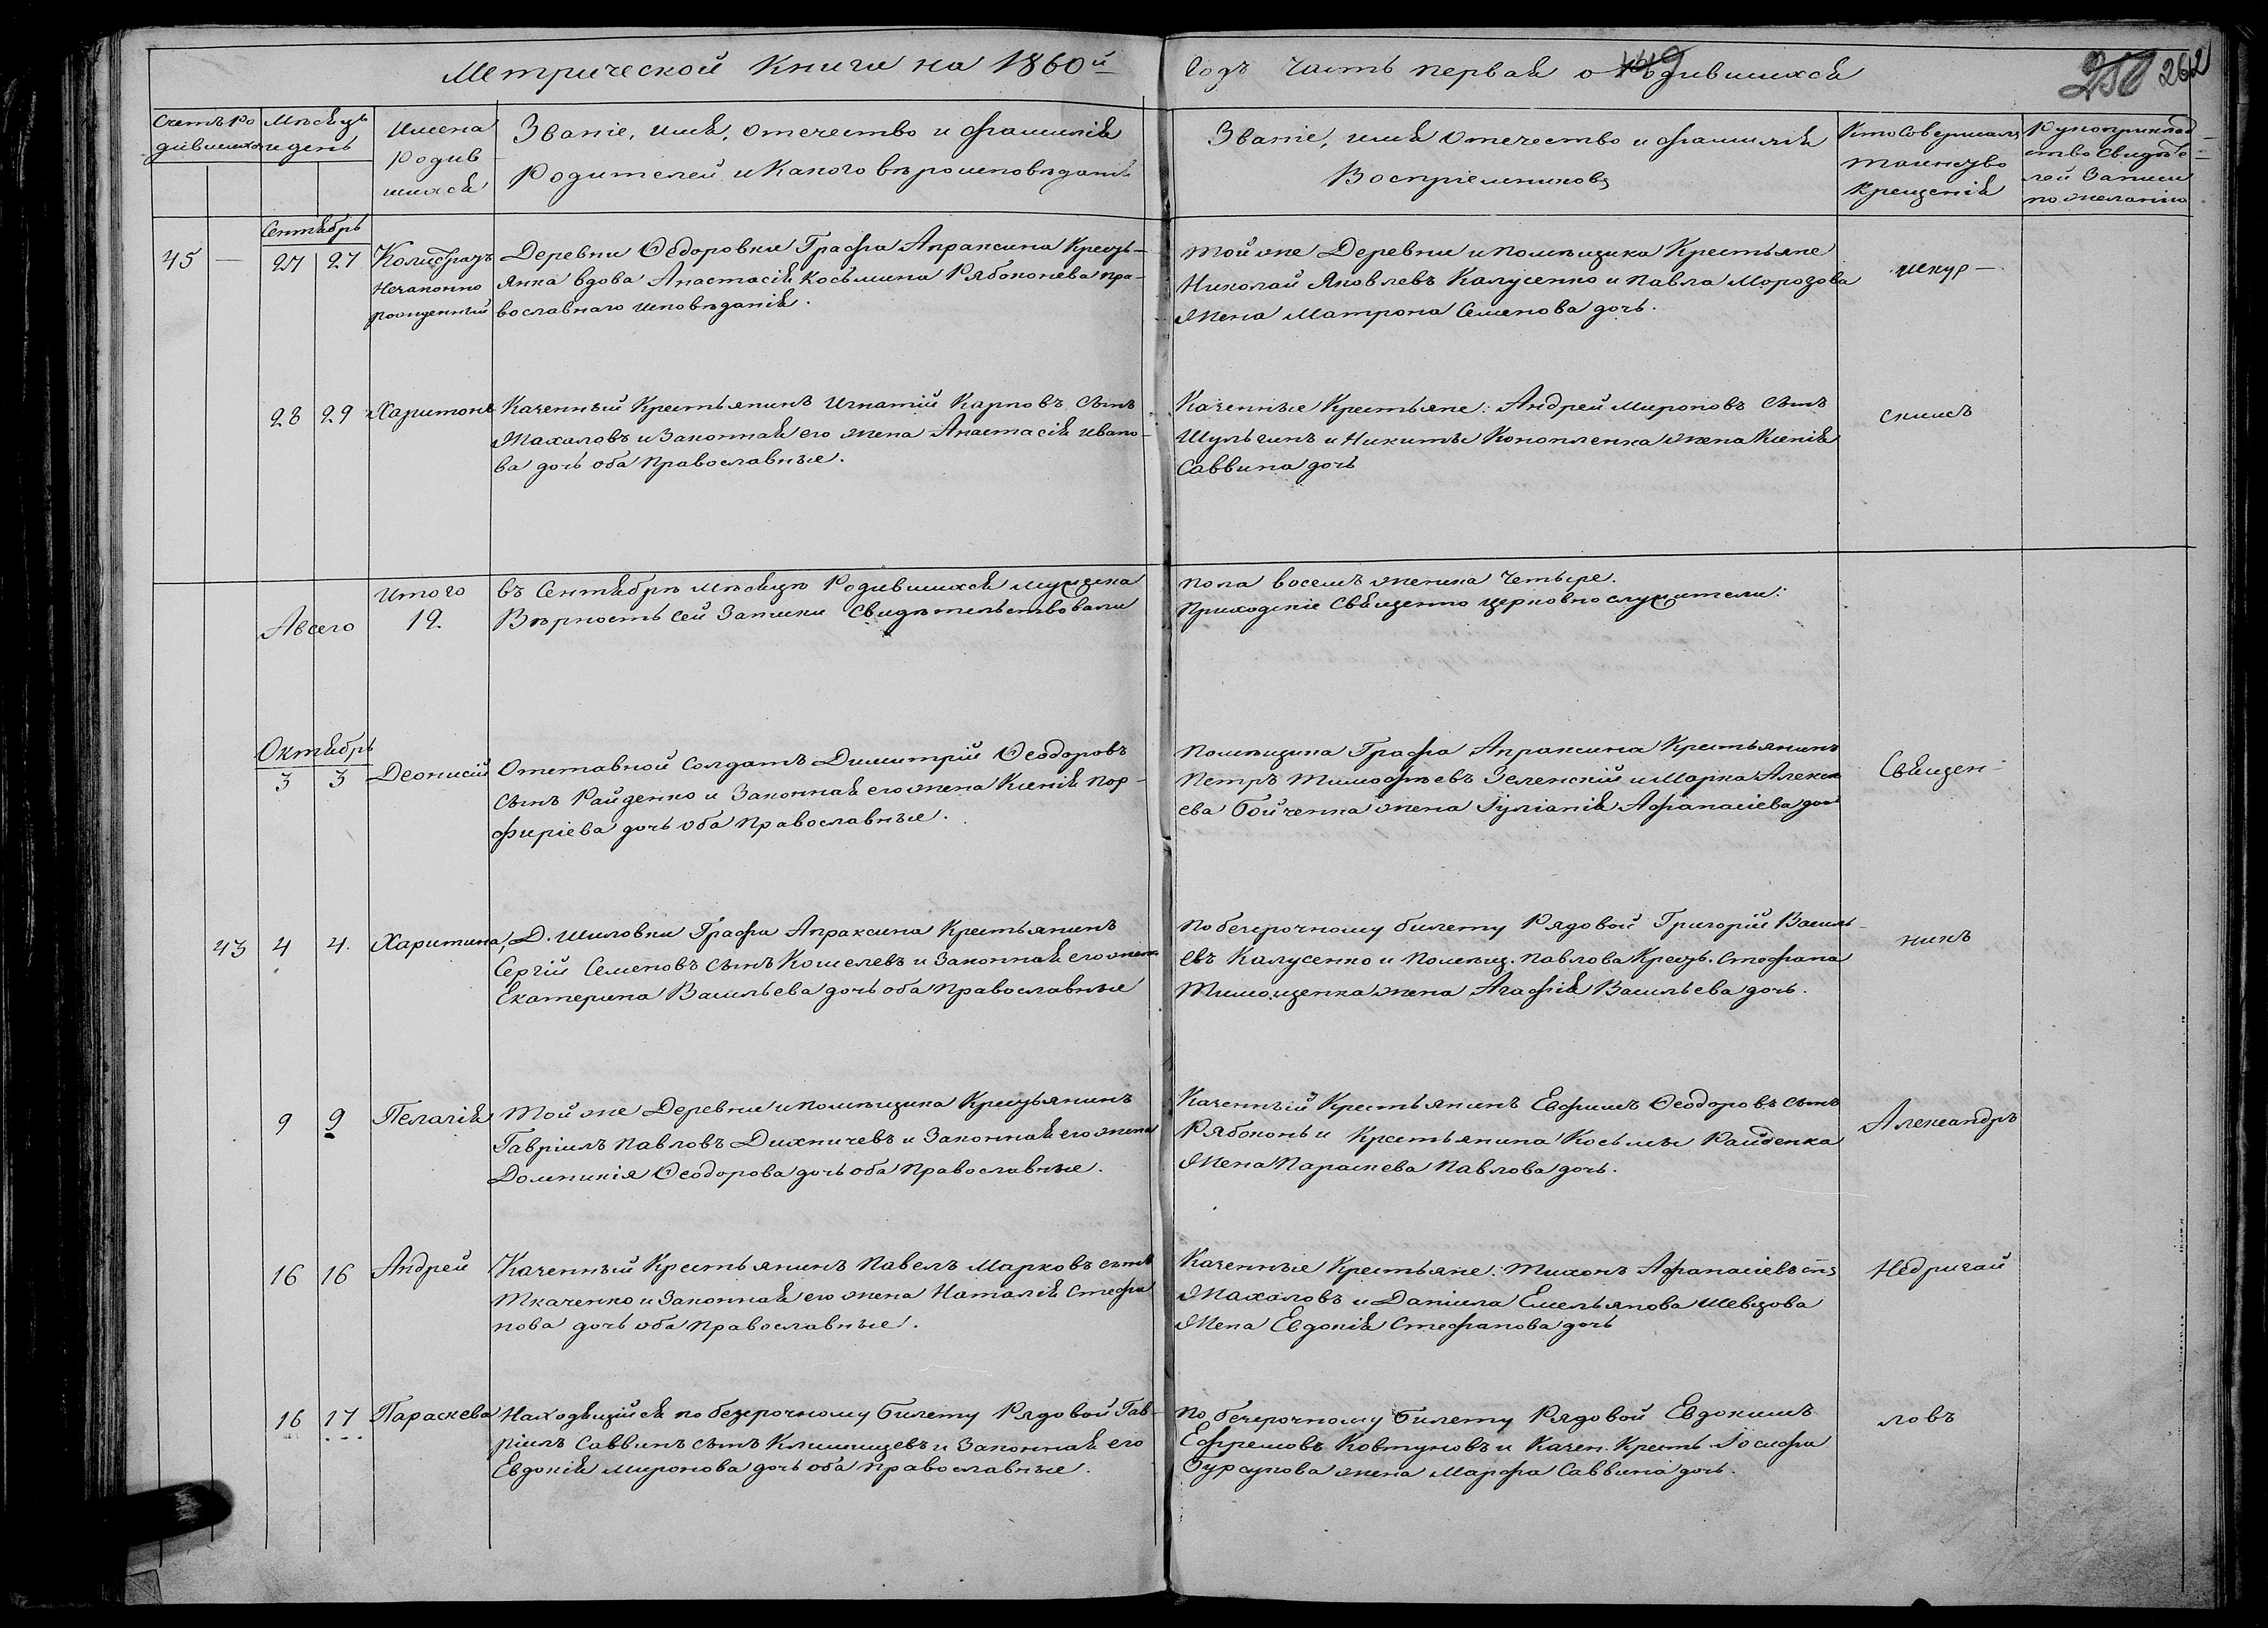 Метрической Книги на 1860й
Годъ Часть первая о Родившихся
149
250 262
Счетъ Родившихся
Мѣсяцъ и день
Имена Родившихся
Званіе, имя, отечество и фамилія
Родителей и Какого вѣроисповѣданія
Званіе, имя отечество и фамилія
Воспріемниковъ
Кто Совершалъ
таинство
крещенія
Рукоприкладство Свидѣтелей Записи
по желанію
Сентябрь
45 — 27 27
Калистратъ
Незаконно
рожденный
Деревни Ѳедоровки Графа Апраксина Кресть-
янка вдова Анастасія Косьмина Рябоконева пра-
вославнаго исповѣданія.
Той же Деревни и помѣщика Крестьяне
Николай Яковлевъ Калусенко и Павла Морозова
Жена Матрона Семенова дочь.
28 29 Харитонъ
Казенный Крестьянинъ Игнатій Карповъ Сынъ
Махаловъ и Законная его жена Анастасія Ивано-
ва дочь оба Православные.
Казенные Крестьяне: Андрей Мироновъ Сынъ
Шульгинъ и Никиты Конопленка жена Ксенія
Саввина дочь
Итого въ Сентябрѣ мѣсяцѣ Родившихся мужеска
пола восемъ женска Четыре.
Авсего 12.
Вѣрность сей Записки Свидѣтельствовали
Приходскіе Священно церковнослужители:
Октябрь
3 3 Деонисій
Отставной Солдатъ Димитрій Ѳеодоровъ
Сынъ Райденко и Законная его жена Ксенія Пор-
фиріева дочь оба Православные.
Помѣщика Графа Апраксина Крестьянинъ
Петръ Тимофѣевъ Зеленскій и Марка Алексѣ
ева Бойченка жена Іуліанія Афанасіева дочь
Священ-
43 4 4. Харитина
Д. Шиловки Графа Апраксина Крестьянинъ
Сергій Семеновъ Сынъ Кошелевъ и Законная его жена
Екатерина Васильева дочь оба Православные
по безсрочному билету Рядовой Григорій Василь-
евъ Калусенко и Помѣщ. Павлова Кресть. Стефана
Тимощенка жена Агафія Васильева дочь.
никъ
9 9 Пелагія
Той же Деревни и помѣщика Крестьянинъ
Гавріилъ Павловъ Дихничевъ и Законная его жена
Домникія Ѳеодорова дочь оба Православные.
Казенный Крестьянинъ Евфимъ Ѳеодоровъ сынъ
Рябоконь и Крестьянина Косьмы Райденка
Жена Параскева Павлова дочь.
Александръ
16 16 Андрей
Казенный Крестьянинъ Павелъ Марковъ сынъ
Ткаченко и Законная его жена Наталія Стефа
нова дочь оба Православные.
Казенные Крестьяне: Тихонъ Афанасіевъ снъ
Махаловъ и Даніила Емельянова Шевцова
Жена Евдокія Стефанова дочь
Недригай
16 17 Параскева
Находящійся по безсрочному билету Рядовой Гав-
ріилъ Саввинъ сынъ Климищевъ и Законная его
Евдокія Миронова дочь оба Православные.
по безсрочному билету Рядовой Евдокимъ
Ефремовъ Ковтуновъ и Казен. Кресть. Іосифа
Бурсунова жена Марфа Саввина дочь.
ловъ